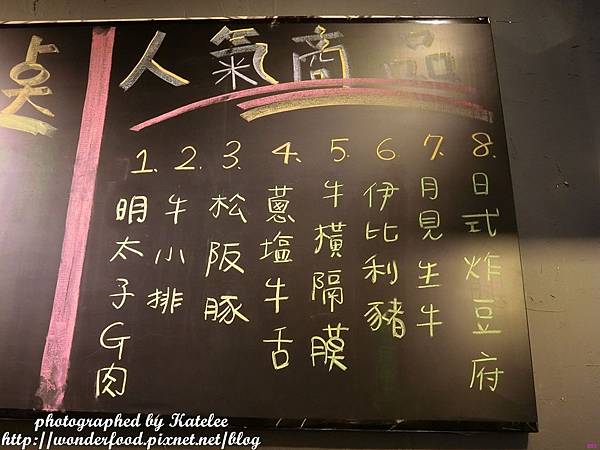 点
人氣商品
1. 明太子G肉
2. 牛小排
3. 松阪豚
4. 蔥塩牛舌
5. 牛橫隔膜
6. 伊比利豬
7. 月見生牛
8. 日式炸豆府
photographed by Katelee
http://wonderfood.pixnet.net/blog